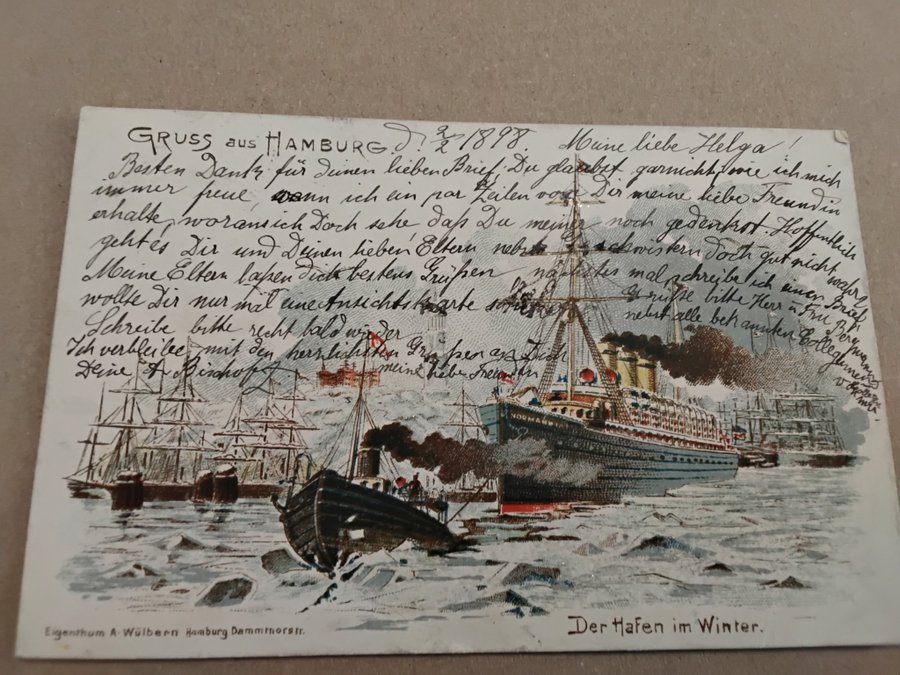 GRUSS aus HAMBURG d. 2/2 1898. Meine liebe Helga!
Besten Dank für Deinen lieben Brief, Du glaubst garnicht wie ich mich
immer freue, wenn ich ein par Zeilen von Dir meine liebe Freundin
erhalte, woran ich Doch sehe daß Du meiner noch gedenkst. Hoffentlich
geht es Dir und Deinen lieben Eltern nebst Geschwistern doch gut nicht wahr
Meine Eltern laßen dich bestens Grüßen nächstes mal schreibe ich einen Brief
wollte Dir nur mal eine Ansichtskarte schicken Grüße bitte Herr u Frau
Schreibe bitte recht bald wieder nebst alle bekannten
Ich verbleibe mit den herzlichsten Grüßen an Dich
Deine A. Bischoff meine liebe Freundin
NORMANNIA
Eigenthum A. Wülbern Hamburg Dammthorstr.
Der Hafen im Winter.